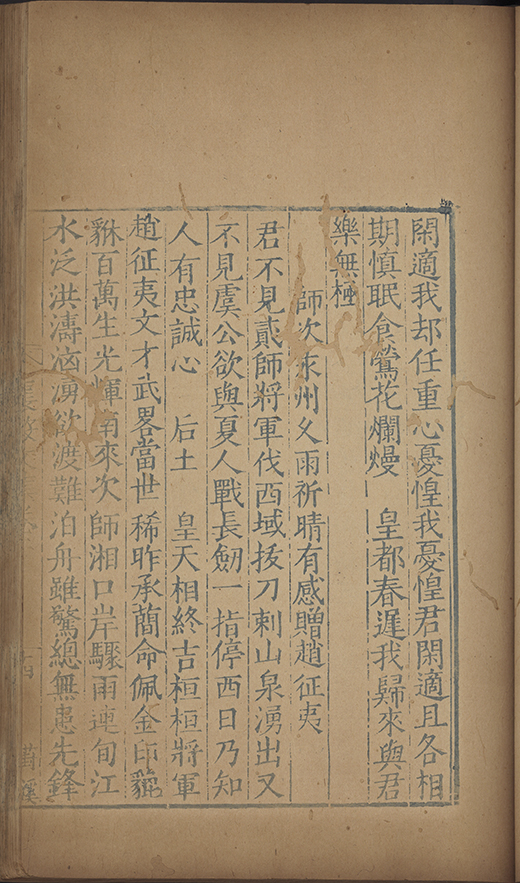 閑適我却任重心憂惶我憂惶君閑適且各相
期慎眠食鶯花爛熳　皇都春遲我歸來與君
樂無極
師次永州久雨祈晴有感贈趙征夷
君不見貳師將軍伐西域拔刀刺山泉湧出又
不見虞公欲與夏人戰長劒一指停西日乃知
人有忠誠心　后土　皇天相終吉桓桓將軍
趙征夷文才武畧當世稀昨承蕳命佩金印貔
貅百萬生光輝南來次師湘口岸驟雨連旬江
水泛洪濤洶湧欲渡難泊舟雖驚總無患先鋒